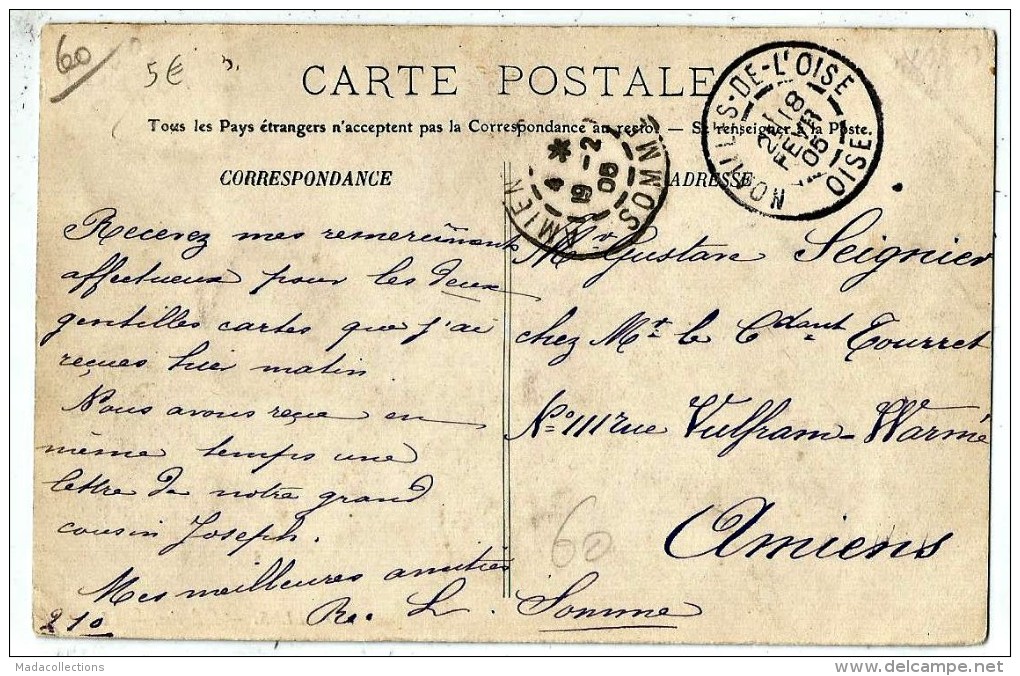 60
5€
CARTE POSTALE
Tous les Pays étrangers n'acceptent pas la Correspondance au recto. — Se renseigner à la Poste.
CORRESPONDANCE
Recevez mes remerciments
affectueux pour les deux
gentilles cartes que j'ai
reçues hier matin.
Nous avons reçu en
même temps une
lettre de notre grand
cousin Joseph.
Mes meilleures amitiés
Re. L.
210
ADRESSE
Mr Gustave Seignier
chez Mr le Cdant Tourret
No 111 rue Vulfram-Warmé
Amiens
Somme
60
AMIENS SOMME
4 *
19 -2
05
NOAILLES-DE-L'OISE OISE
18
FEVR
05
Madacollections
www.delcampe.net